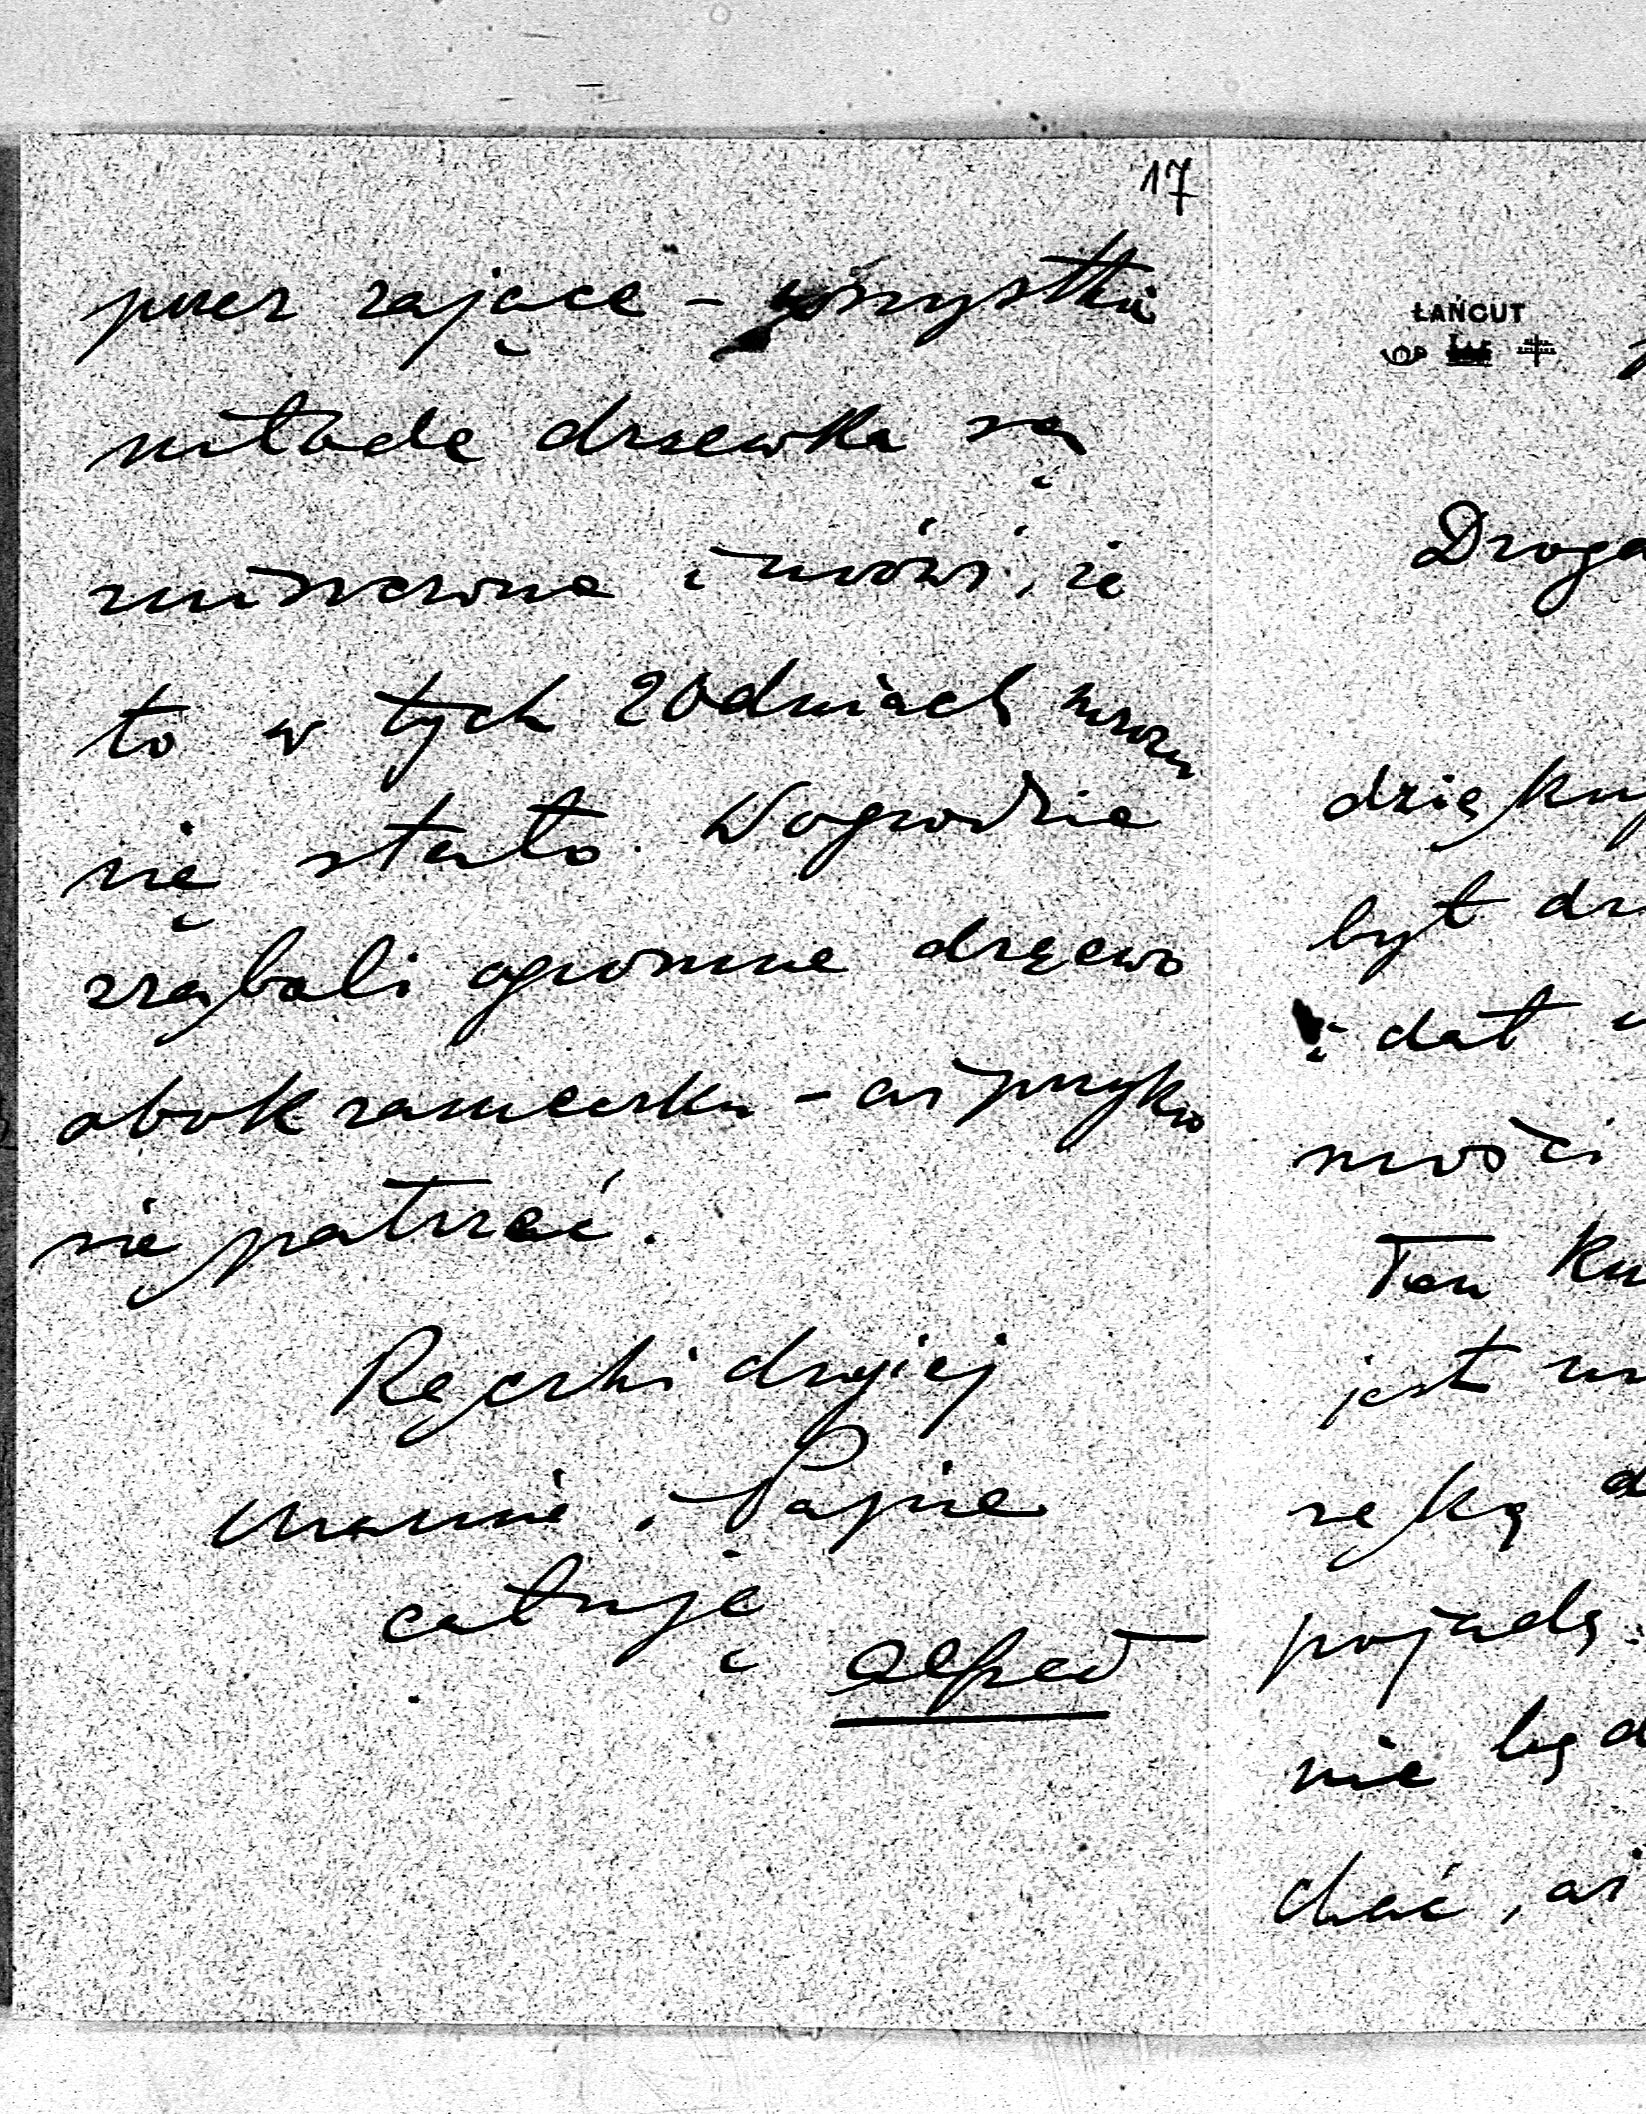 17
przez zające – wszystkie
młode drzewka są
zniszczone i mówi, że
to w tych 20 dniach mrozu
się stało. W ogrodzie
zrąbali ogromne drzewo
obok zameczku – aż przykro
się patrzeć.
Rączki drogiej
Mamie i Papie
całuję
Alfred
ŁAŃCUT
Droga
dzięku
był
i dał
ności
Ten
jest
ręką
pojadę.
nie
chać, aż